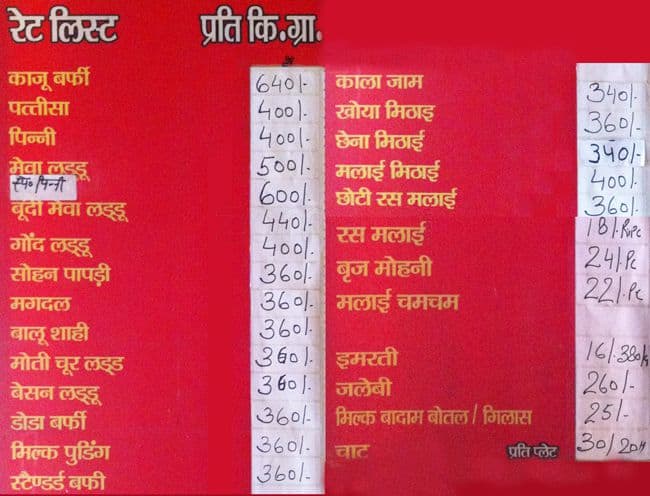 रेट लिस्ट प्रति कि.ग्रा.
काजू बर्फी 640/-
पत्तीसा 400/-
पिन्नी 400/-
मेवा लड्डू 500/-
स्प० पिन्नी 600/-
बूंदी मेवा लड्डू 440/-
गोंद लड्डू 400/-
सोहन पापड़ी 360/-
मगदल 360/-
बालू शाही 360/-
मोती चूर लड्ड 360/-
बेसन लड्डू 360/-
डोडा बर्फी 360/-
मिल्क पुडिंग 360/-
स्टैण्डर्ड बर्फी 360/-
काला जाम 340/-
खोया मिठाइ 360/-
छेना मिठाई 340/-
मलाई मिठाई 400/-
छोटी रस मलाई 360/-
रस मलाई 18/-
बृज मोहनी 24/-Pc
मलाई चमचम 22/-Pc
इमरती 16/- 380/
जलेबी 260/-
मिल्क बादाम बोतल / गिलास 25/-
चाट प्रति प्लेट 30/20